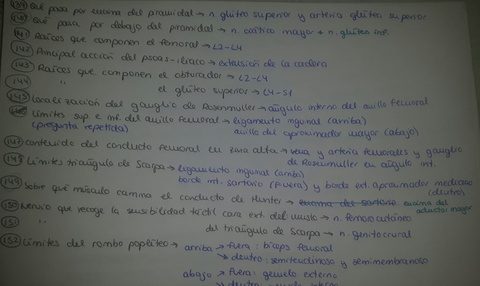 139 Qué pasa por encima del piramidal → n. glúteo superior y arteria glútea superior
140 Qué pasa por debajo del piramidal → n. ciático mayor + n. glúteo inf.
141 Raíces que componen el femoral → L2-L4
142 Principal acción del psoas-ilíaco → extensión de la cadera
143 Raíces que componen el obturador → L2-L4
144 " el glúteo superior → L4-S1
145 Localización del ganglio de Rosenmuller → ángulo interno del anillo femoral
146 Límites sup e inf. del anillo femoral → ligamento inguinal (arriba)
(pregunta repetida) anillo del aproximador mayor (abajo)
147 Contenido del conducto femoral en zona alta → vena y arteria femorales y ganglio
de Rosenmuller en ángulo int.
148 Límites triángulo de Scarpa → ligamento inguinal (arriba)
borde int. sartorio (fuera) y borde ext. aproximador mediano
(dentro)
149 Sobre qué músculo camina el conducto de Hunter → encima del sartorio. encima del
aductor mayor
150 Nervio que recoge la sensibilidad táctil cara ext. del muslo → n. femorocutáneo
151 " del triángulo de Scarpa → n. genitocrural
152 Límites del rombo poplíteo → arriba → fuera: bíceps femoral
→ dentro: semitendinoso y semimembranoso
abajo → fuera: gemelo externo
→ dentro: gemelo